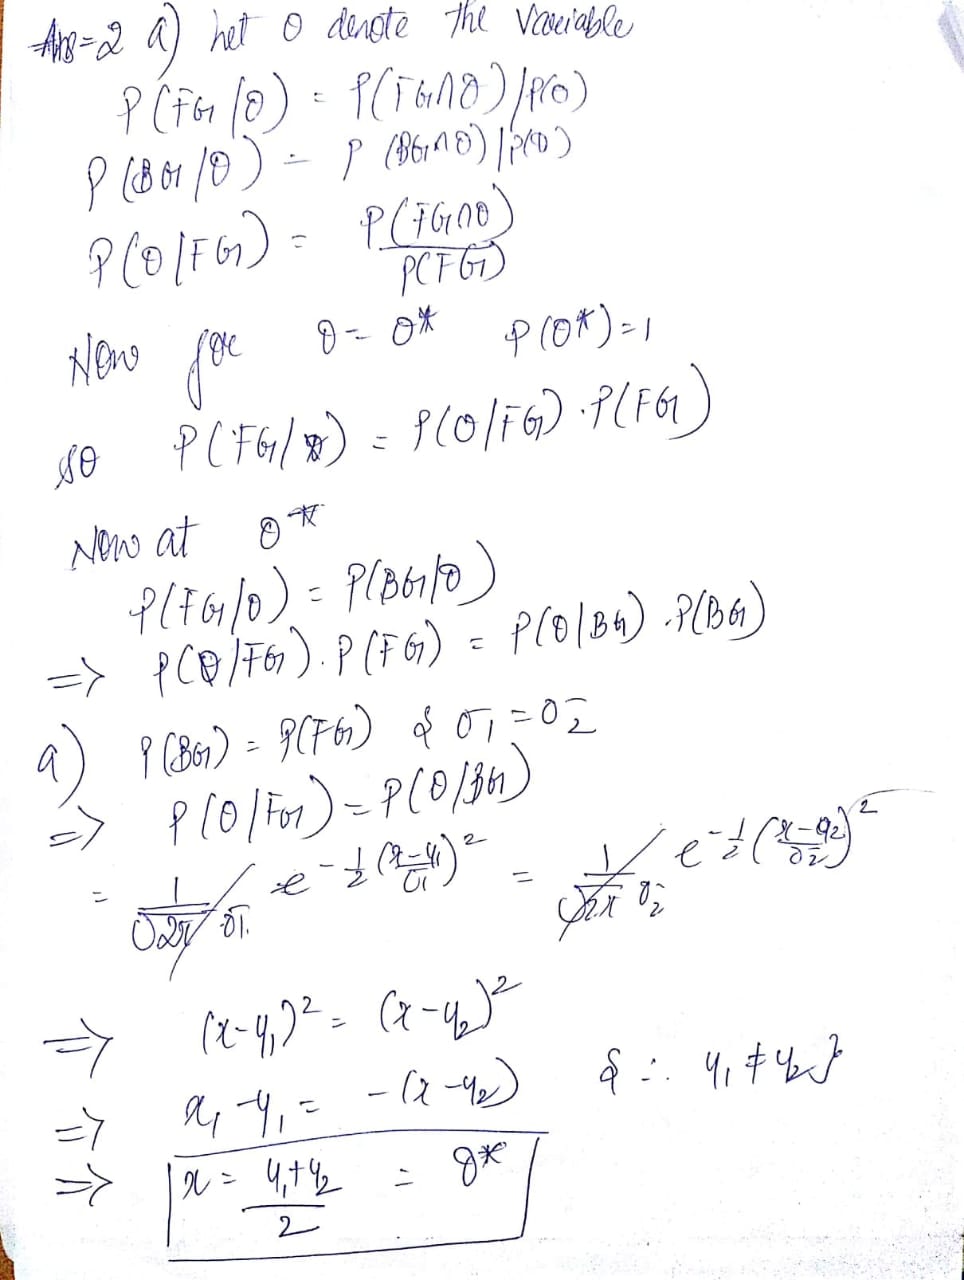 Ans=2 a) Let θ denote the Variable
P(FG/θ) = P(FG∩θ)/P(θ)
P(BG/θ) = P(BG∩θ)/P(θ)
P(θ/FG) = P(FG∩θ) / P(FG)
Now for θ = θ* P(θ*)=1
so P(FG/θ) = P(θ/FG).P(FG)
Now at θ*
P(FG/θ) = P(BG/θ)
=> P(θ/FG).P(FG) = P(θ/BG).P(BG)
a) P(BG) = P(FG) & σ₁ = σ₂
=> P(θ/FG) = P(θ/BG)
= 1/(√2π σ₁) e^(-1/2 ((x-μ₁)/σ₁)²) = 1/(√2π σ₂) e^(-1/2 ((x-μ₂)/σ₂)²)
=> (x-μ₁)² = (x-μ₂)²
=> x₁-μ₁ = -(x-μ₂) & ∴ μ₁ ≠ μ₂}
=> x = (μ₁+μ₂)/2 = θ*